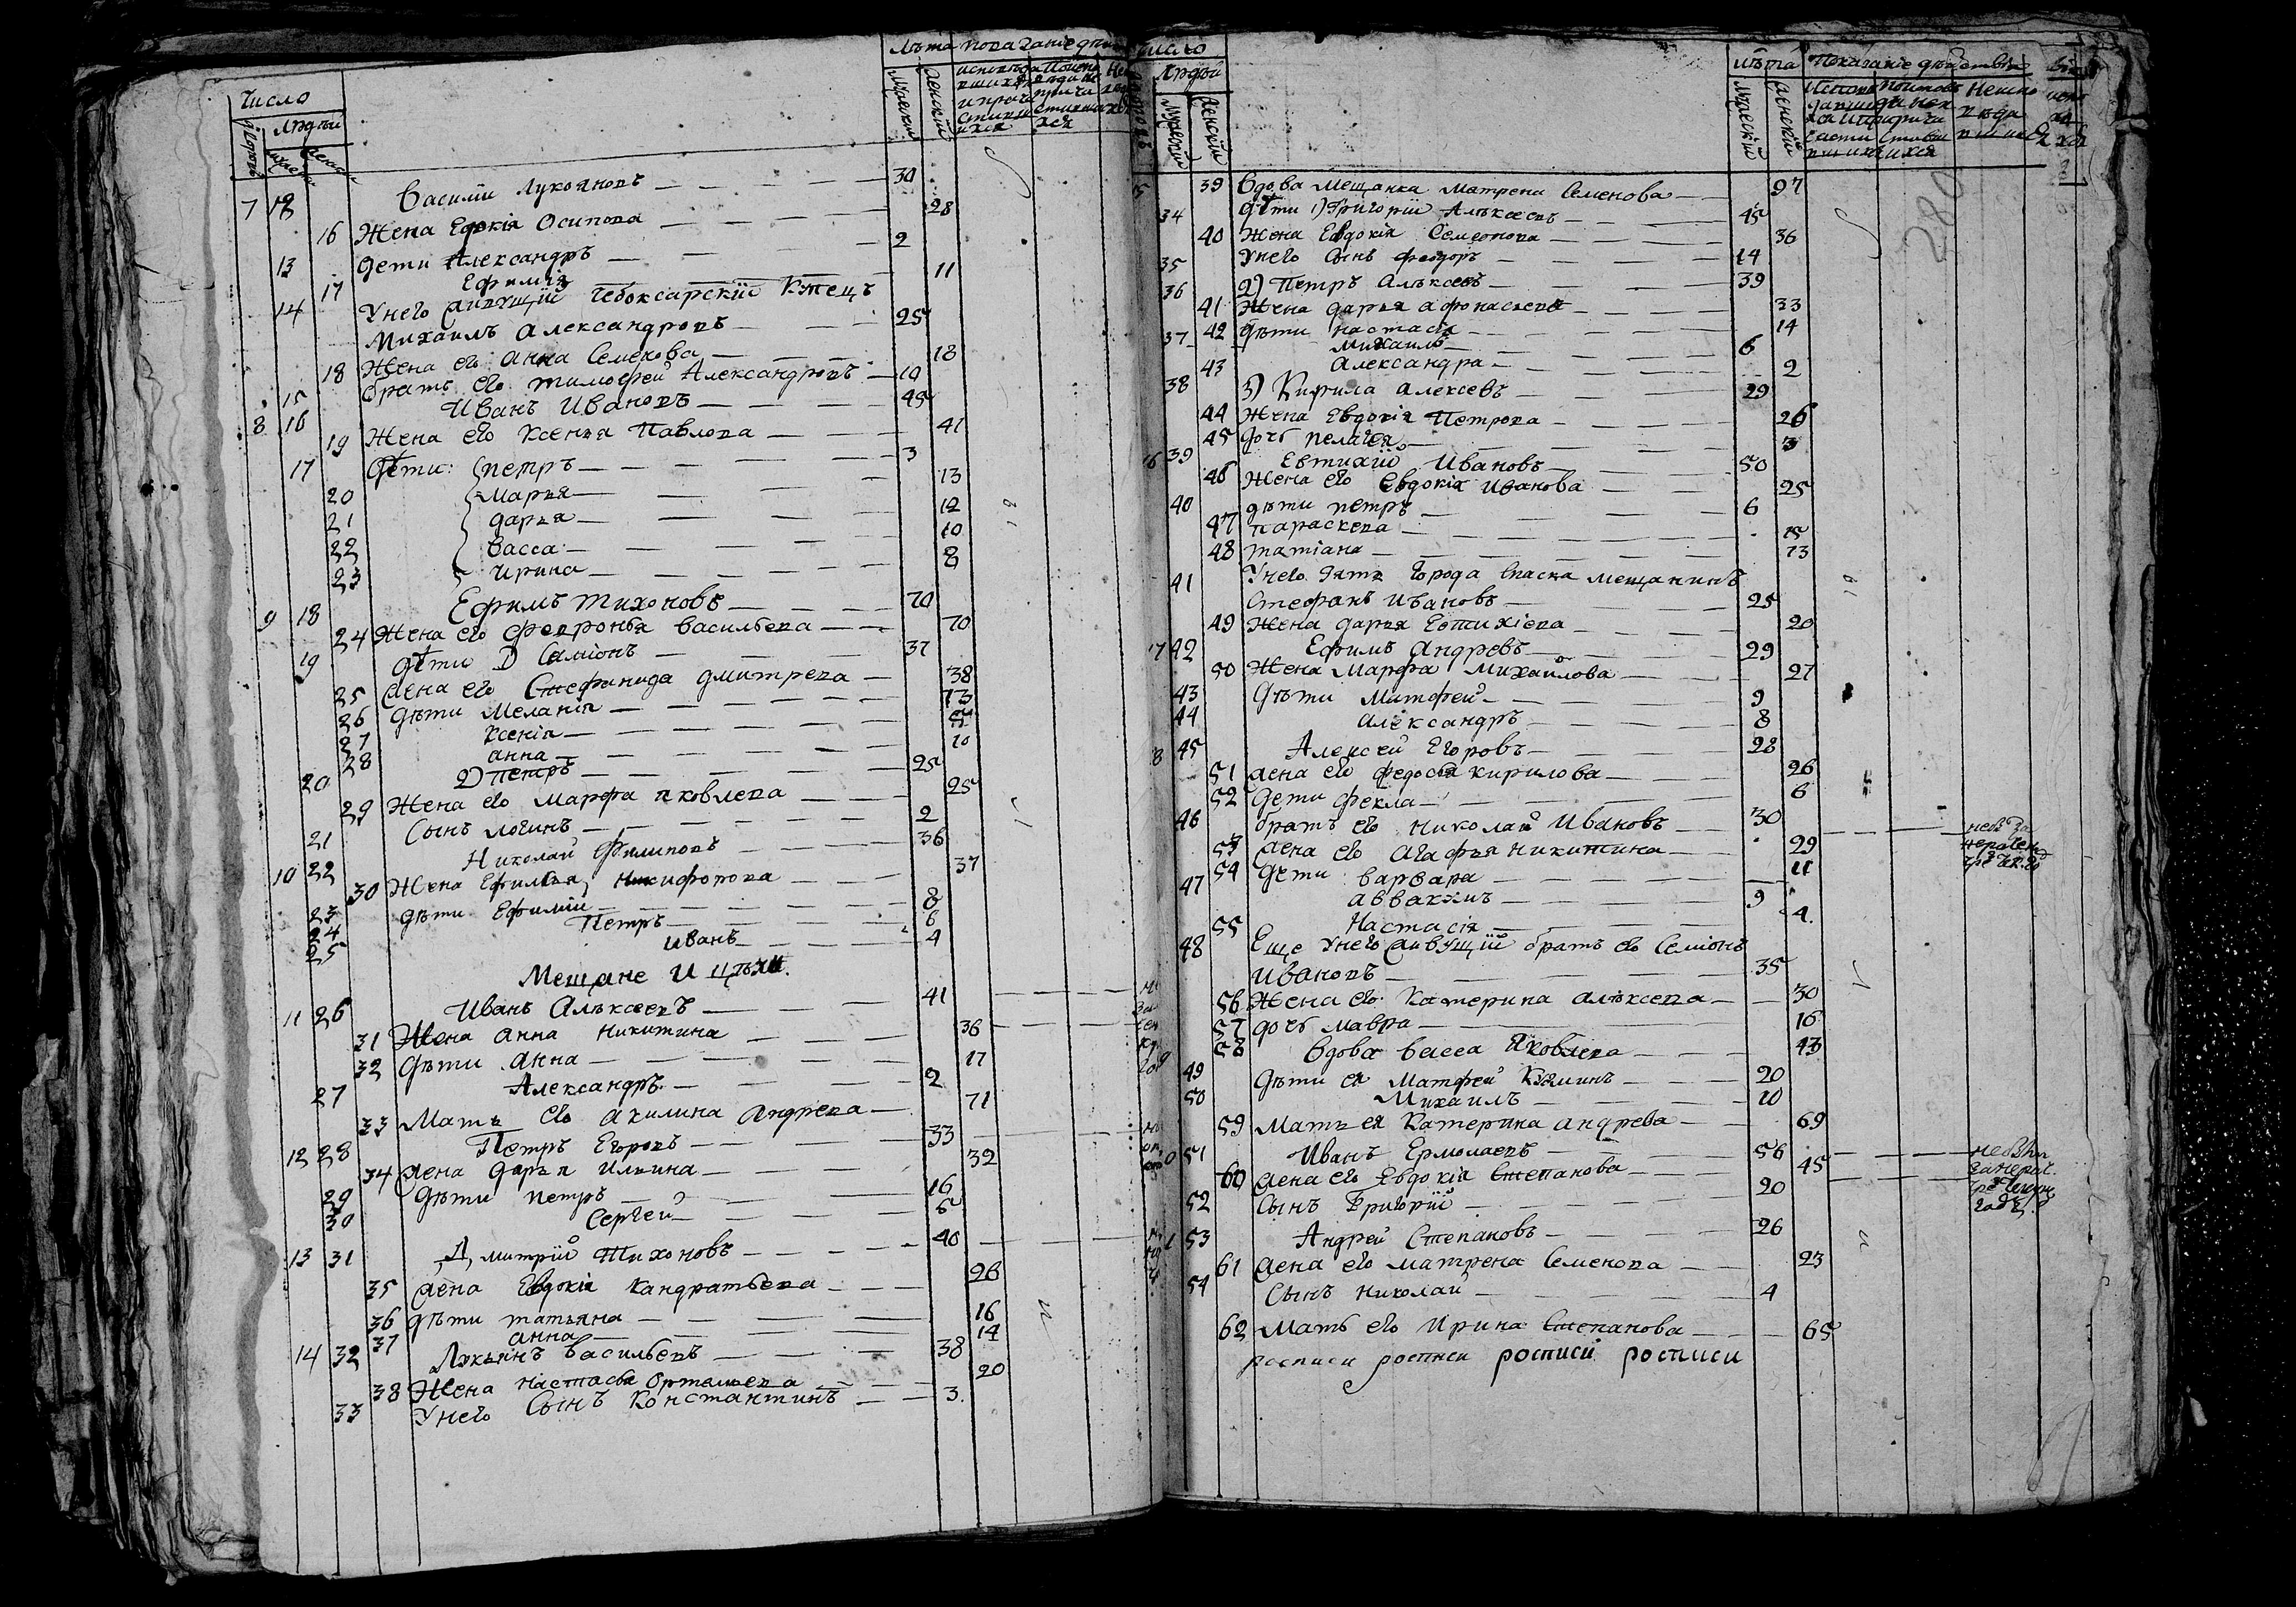 Число
Людей
7 12 Василий Лукояновъ 30
16 Жена Евдокія Осипова 28
13 Дети Александръ 2
17 Ефимія 11
14 Унего живущій Чебоксарскій Купецъ
Михаилъ Александровъ 25
18 Жена его Анна Семенова 18
15 братъ его Тимофей Александровъ 10
8 16 Иванъ Ивановъ 45
19 Жена его Ксенья Павлова 41
17 Дѣти: Петръ 3
20 Марья 13
21 Дарья 12
22 Васса 10
23 Ирина 8
9 18 Ефимъ Тихоновъ 70
24 Жена его Февронья Васильева 70
19 Дѣти 1) Симіонъ 37
25 Жена его Стефанида Дмитрева 38
26 Дѣти Меланія 13
27 Ксенія
28 Анна 10
20 2) Петръ 25
29 Жена его Марфа Яковлева 25
21 Сынъ Логинъ 2
10 22 Николай Филиповъ 36
30 Жена Ефимья Никифорова 37
23 Дѣти Ефимій 8
24 Петръ 6
25 Иванъ 4
Мещане И цѣхи.
11 26 Иванъ Алѣксеевъ 41
31 Жена Анна Никитина 36
32 Дѣти Анна 17
27 Александръ 2
33 Мать его Акилина Андрева 71
12 28 Петръ Егоровъ 33
34 Жена Дарья Ильина 32
29 Дѣти Петръ 16
30 Сергей 5
13 31 Дмитрій Тихоновъ 40
35 Жена Евдокія Кандратьева 26
36 Дѣти Татьяна 16
37 Анна 14
14 32 Лукьянъ Васильевъ 38
38 Жена Настасья Ортемьева 20
33 Унего Сынъ Константинъ 3
Число
Людей
Лѣта Показаніе действія
280
39 Вдова Мещанка Матрена Семенова 97
34 Дѣти 1) Григорій Алѣксеевъ 45
40 Жена Евдокія Семенова 36
35 Унего Сынъ Феодоръ 14
36 2) Петръ Алѣксевъ 39
41 Жена Дарья Афонасьева 33
42 Дѣти Настасья 14
37 Михаилъ 6
43 Александра 2
38 3) Кирила Алексевъ 29
44 Жена Евдокія Петрова 26
45 Дочь Пелагея 3
16 39 Евтихій Ивановъ 50
46 Жена его Евдокія Иванова 25
40 Дѣти Петръ 6
47 Параскева 15
48 Татіана 13
41 Унего Зять Города Спаска Мещанинъ
Стефанъ Ивановъ 25
49 Жена Дарья Евтихіева 20
17 42 Ефимъ Андревъ 29
50 Жена Марфа Михайлова 27
43 Дѣти Матфей 9
44 Александръ 8
8 45 Алексей Егоровъ 28
51 Жена его Федосья Кирилова 26
52 Дети Фекла 6
46 братъ его Николай Ивановъ 30
53 Жена его Агафья Никитина 29
54 Дѣти Варвара 11
47 Аввакимъ 9
55 Настасія 4
48 Еще Унего Живущій братъ его Семіонъ
Ивановъ 35
56 Жена его Катерина Алѣксева 30
57 Дочь Мавра 16
58 Вдова Васса Яковлева 43
49 Дѣти ея Матфей Кузминъ 20
50 Михаилъ 10
59 Мать ея Катерина Андрева 69
51 Иванъ Ермолаевъ 56
60 Жена его Евдокія Степанова 45
52 Сынъ Григорій 20
53 Андрей Степановъ 26
61 Жена его Матрена Семенова 23
54 Сынъ Николай 4
62 Мать его Ирина Степанова 65
росписи росписи росписи росписи